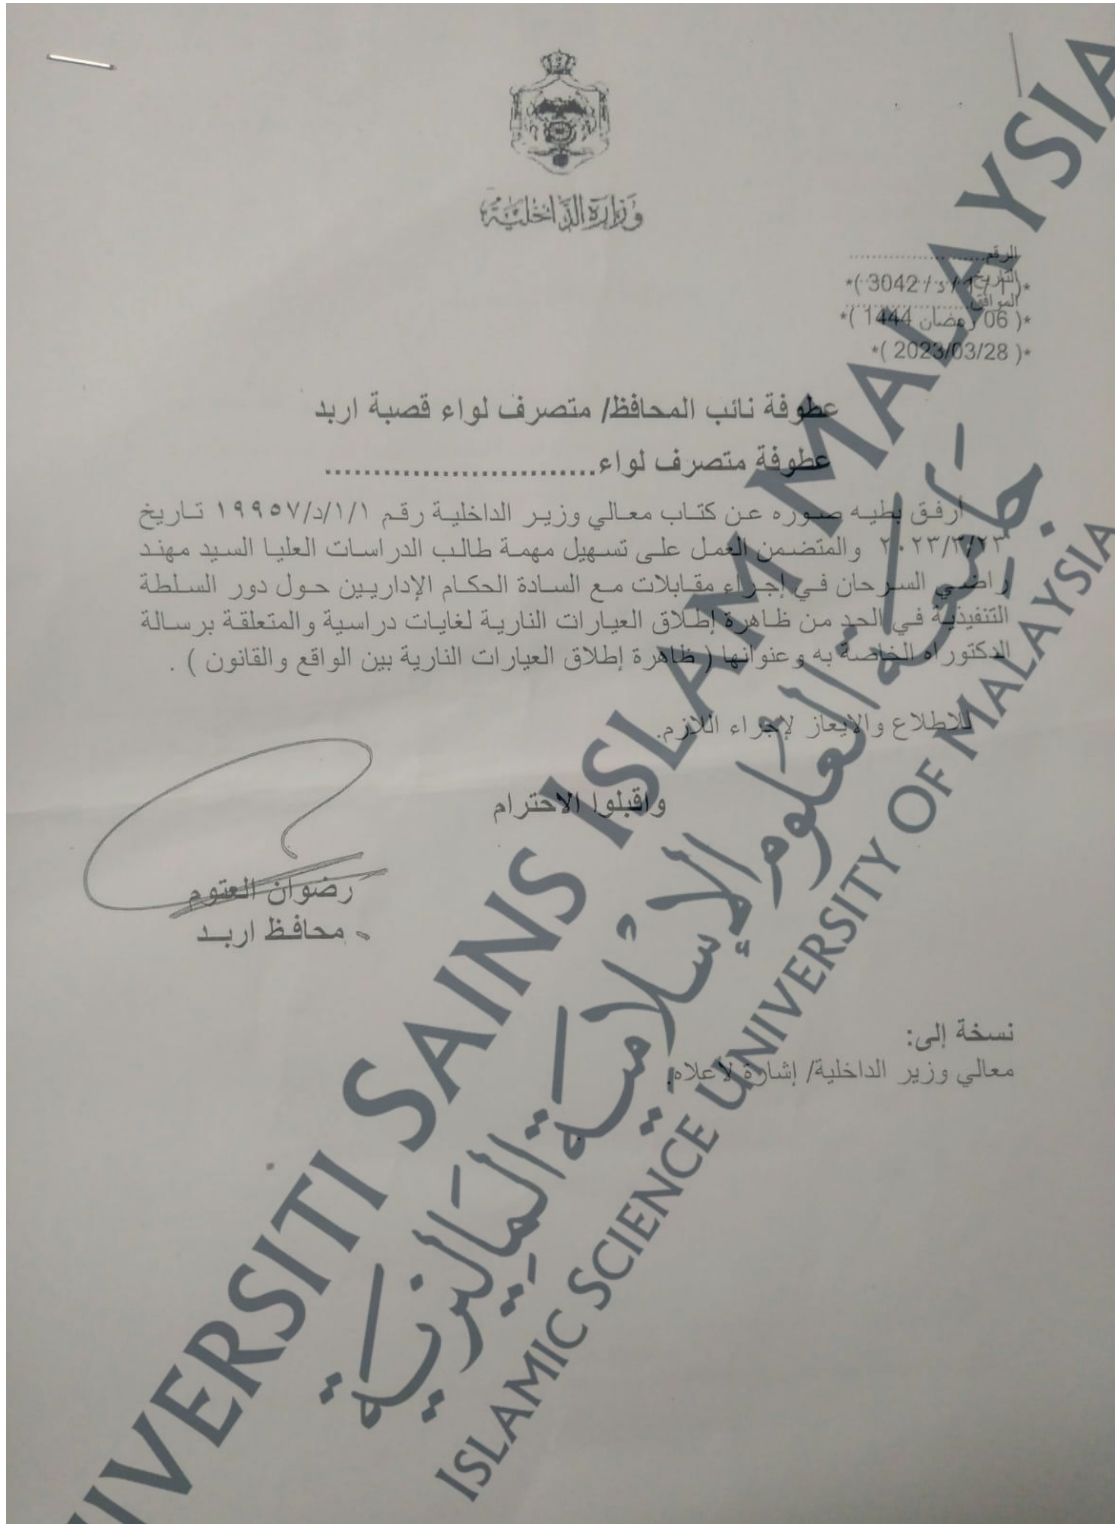 وزارة الداخلية
الرقم.....................
التاريخ
*( 1 / 1 / د / 3042 )*
الموافق.....................
*( 06 رمضان 1444 )*
*( 2023/03/28 )*
عطوفة نائب المحافظ/ متصرف لواء قصبة اربد
عطوفة متصرف لواء............................
ارفق بطيه صوره عن كتاب معالي وزير الداخلية رقم ١/١/د/١٩٩٥٧ تاريخ
٢٠٢٣/٣/٢٣ والمتضمن العمل على تسهيل مهمة طالب الدراسات العليا السيد مهند
راضي السرحان في إجراء مقابلات مع السادة الحكام الإداريين حول دور السلطة
التنفيذية في الحد من ظاهرة إطلاق العيارات النارية لغايات دراسية والمتعلقة برسالة
الدكتوراه الخاصة به وعنوانها ( ظاهرة إطلاق العيارات النارية بين الواقع والقانون ) .
للاطلاع والايعاز لإجراء اللازم.
واقبلوا الاحترام
رضوان العتوم
محافظ اربد
نسخة إلى:
معالي وزير الداخلية/ إشارة لأعلاه.
UNIVERSITI SAINS ISLAM MALAYSIA
جامعة العلوم الإسلامية الماليزية
ISLAMIC SCIENCE UNIVERSITY OF MALAYSIA